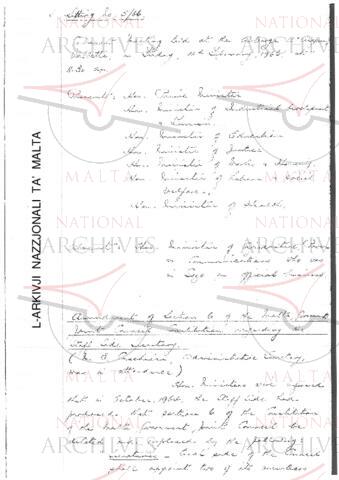 Sitting No. 5/66
Cabinet Meeting held at the Auberge d'Aragon,
Valletta, on Friday, 11th February, 1966, at
8.30 am.
Present: Hon. Prime Minister
Hon. Minister of Industrial Development
& Tourism
Hon. Minister of Education
Hon. Minister of Justice
Hon. Minister of Works & Housing
Hon. Minister of Labour & Social
Welfare.
Hon. Minister of Health.
Absent: Hon. Minister of
Communications who was
in on official business.
Amendment of Section 6 of the Malta Government
Joint Council Constitution regarding the
Staff Side Secretary.
Administrative Secretary,
was in attendance)
Hon. Ministers were informed
that in October, 1964, the Staff Side had
proposed that section 6 of the Constitution
of the Malta Government Joint Council be
deleted and replaced by the following:
Each side of the Council
shall appoint two of its members
L-ARKIVJI NAZZJONALI TA' MALTA
NATIONAL
ARCHIVES
MALTA